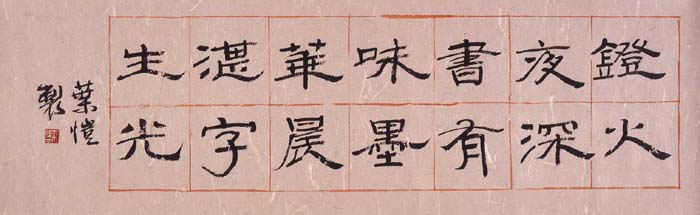 鐙火
夜深
書有
味墨
華晨
湛字
生光
葉愷
製